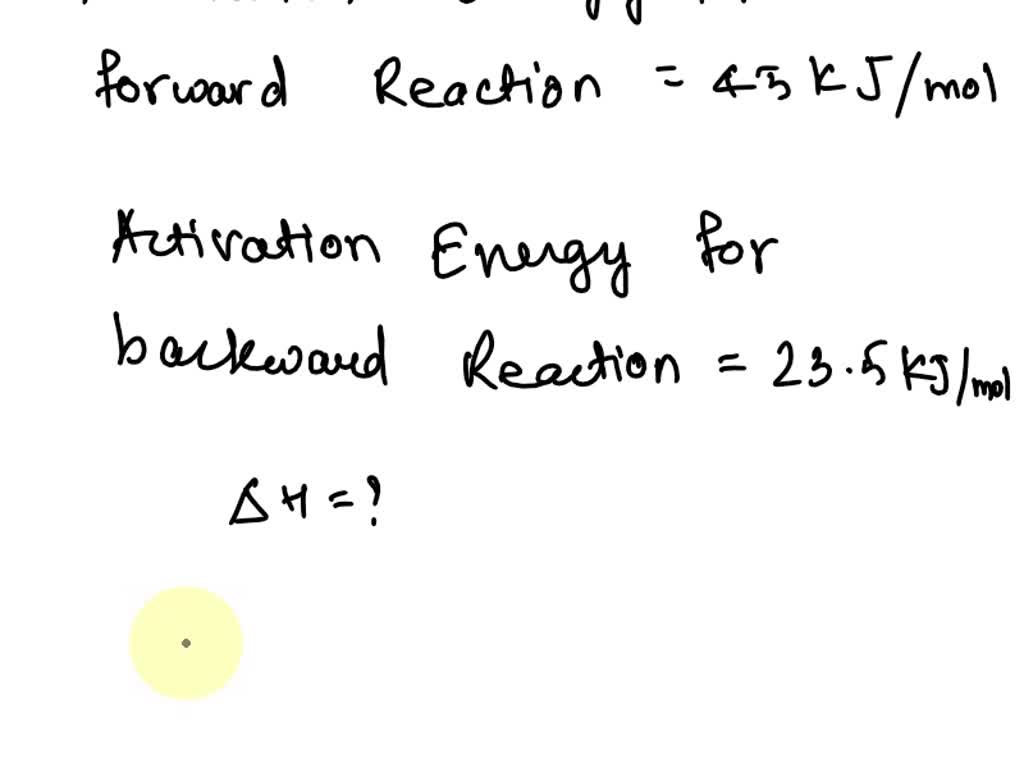 forward Reaction = 45 kJ/mol
Activation Energy for
backward Reaction = 23.5 kJ/mol
ΔH = ?